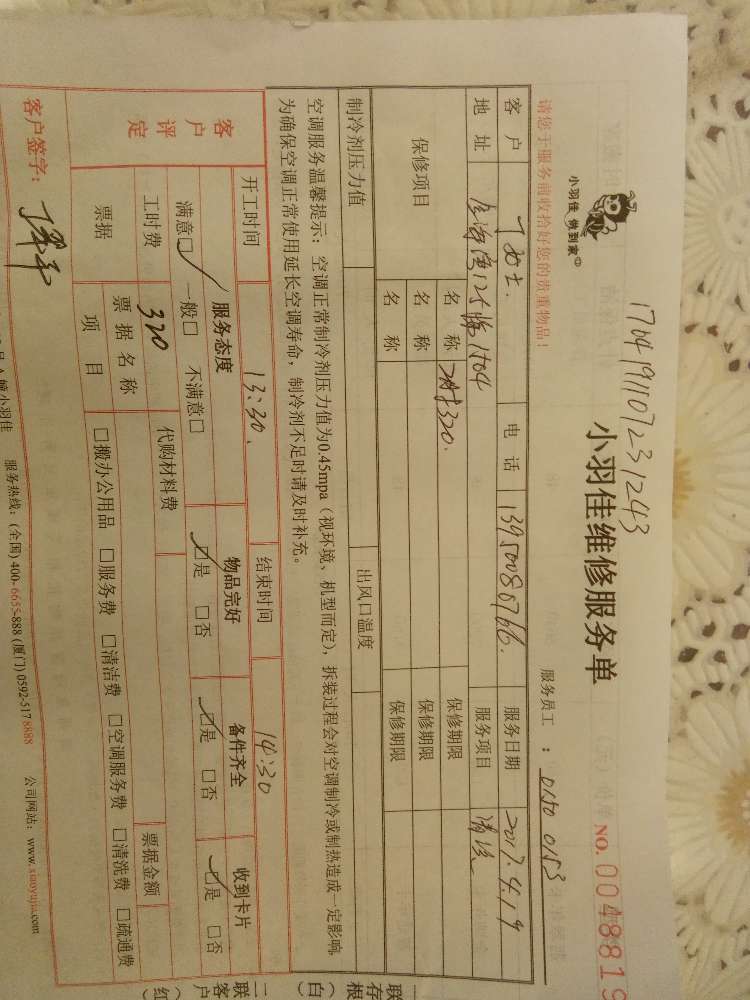 1704191107231243
小羽佳 做到家
小羽佳维修服务单
NO.0048819
请您于服务前收拾好您的贵重物品!
服务员工: 0150 0153
客户 丁女士. 电话 13950080766. 服务日期 2017.4.19
地址 12# 1504 服务项目 清洗
保修项目 名称 320. 保修期限
名称 保修期限
名称 保修期限
制冷剂压力值 出风口温度
空调服务温馨提示:空调正常制冷剂压力值为0.45mpa(视环境、机型而定),拆装过程会对空调制冷或制热造成一定影响
为确保空调正常使用延长空调寿命,制冷剂不足时请及时补充。
开工时间 13:30. 结束时间 14:30
客户评定 服务态度 物品完好 备件齐全 收到卡片
满意☑ 一般□ 不满意□ ☑是 □否 ☑是 □否 ☑是 □否
工时费 320 代购材料费 票据金额
票据 票据名称
项目 □搬办公用品 □服务费 □清洁费 □空调服务费 □清洗费 □疏通费
客户签字:
幢小羽佳 服务热线:(全国)400-6655-888 (厦门)0592-517 8888 公司网站:www.xiaoyujia.com
一联存根(白)
二联客户(红